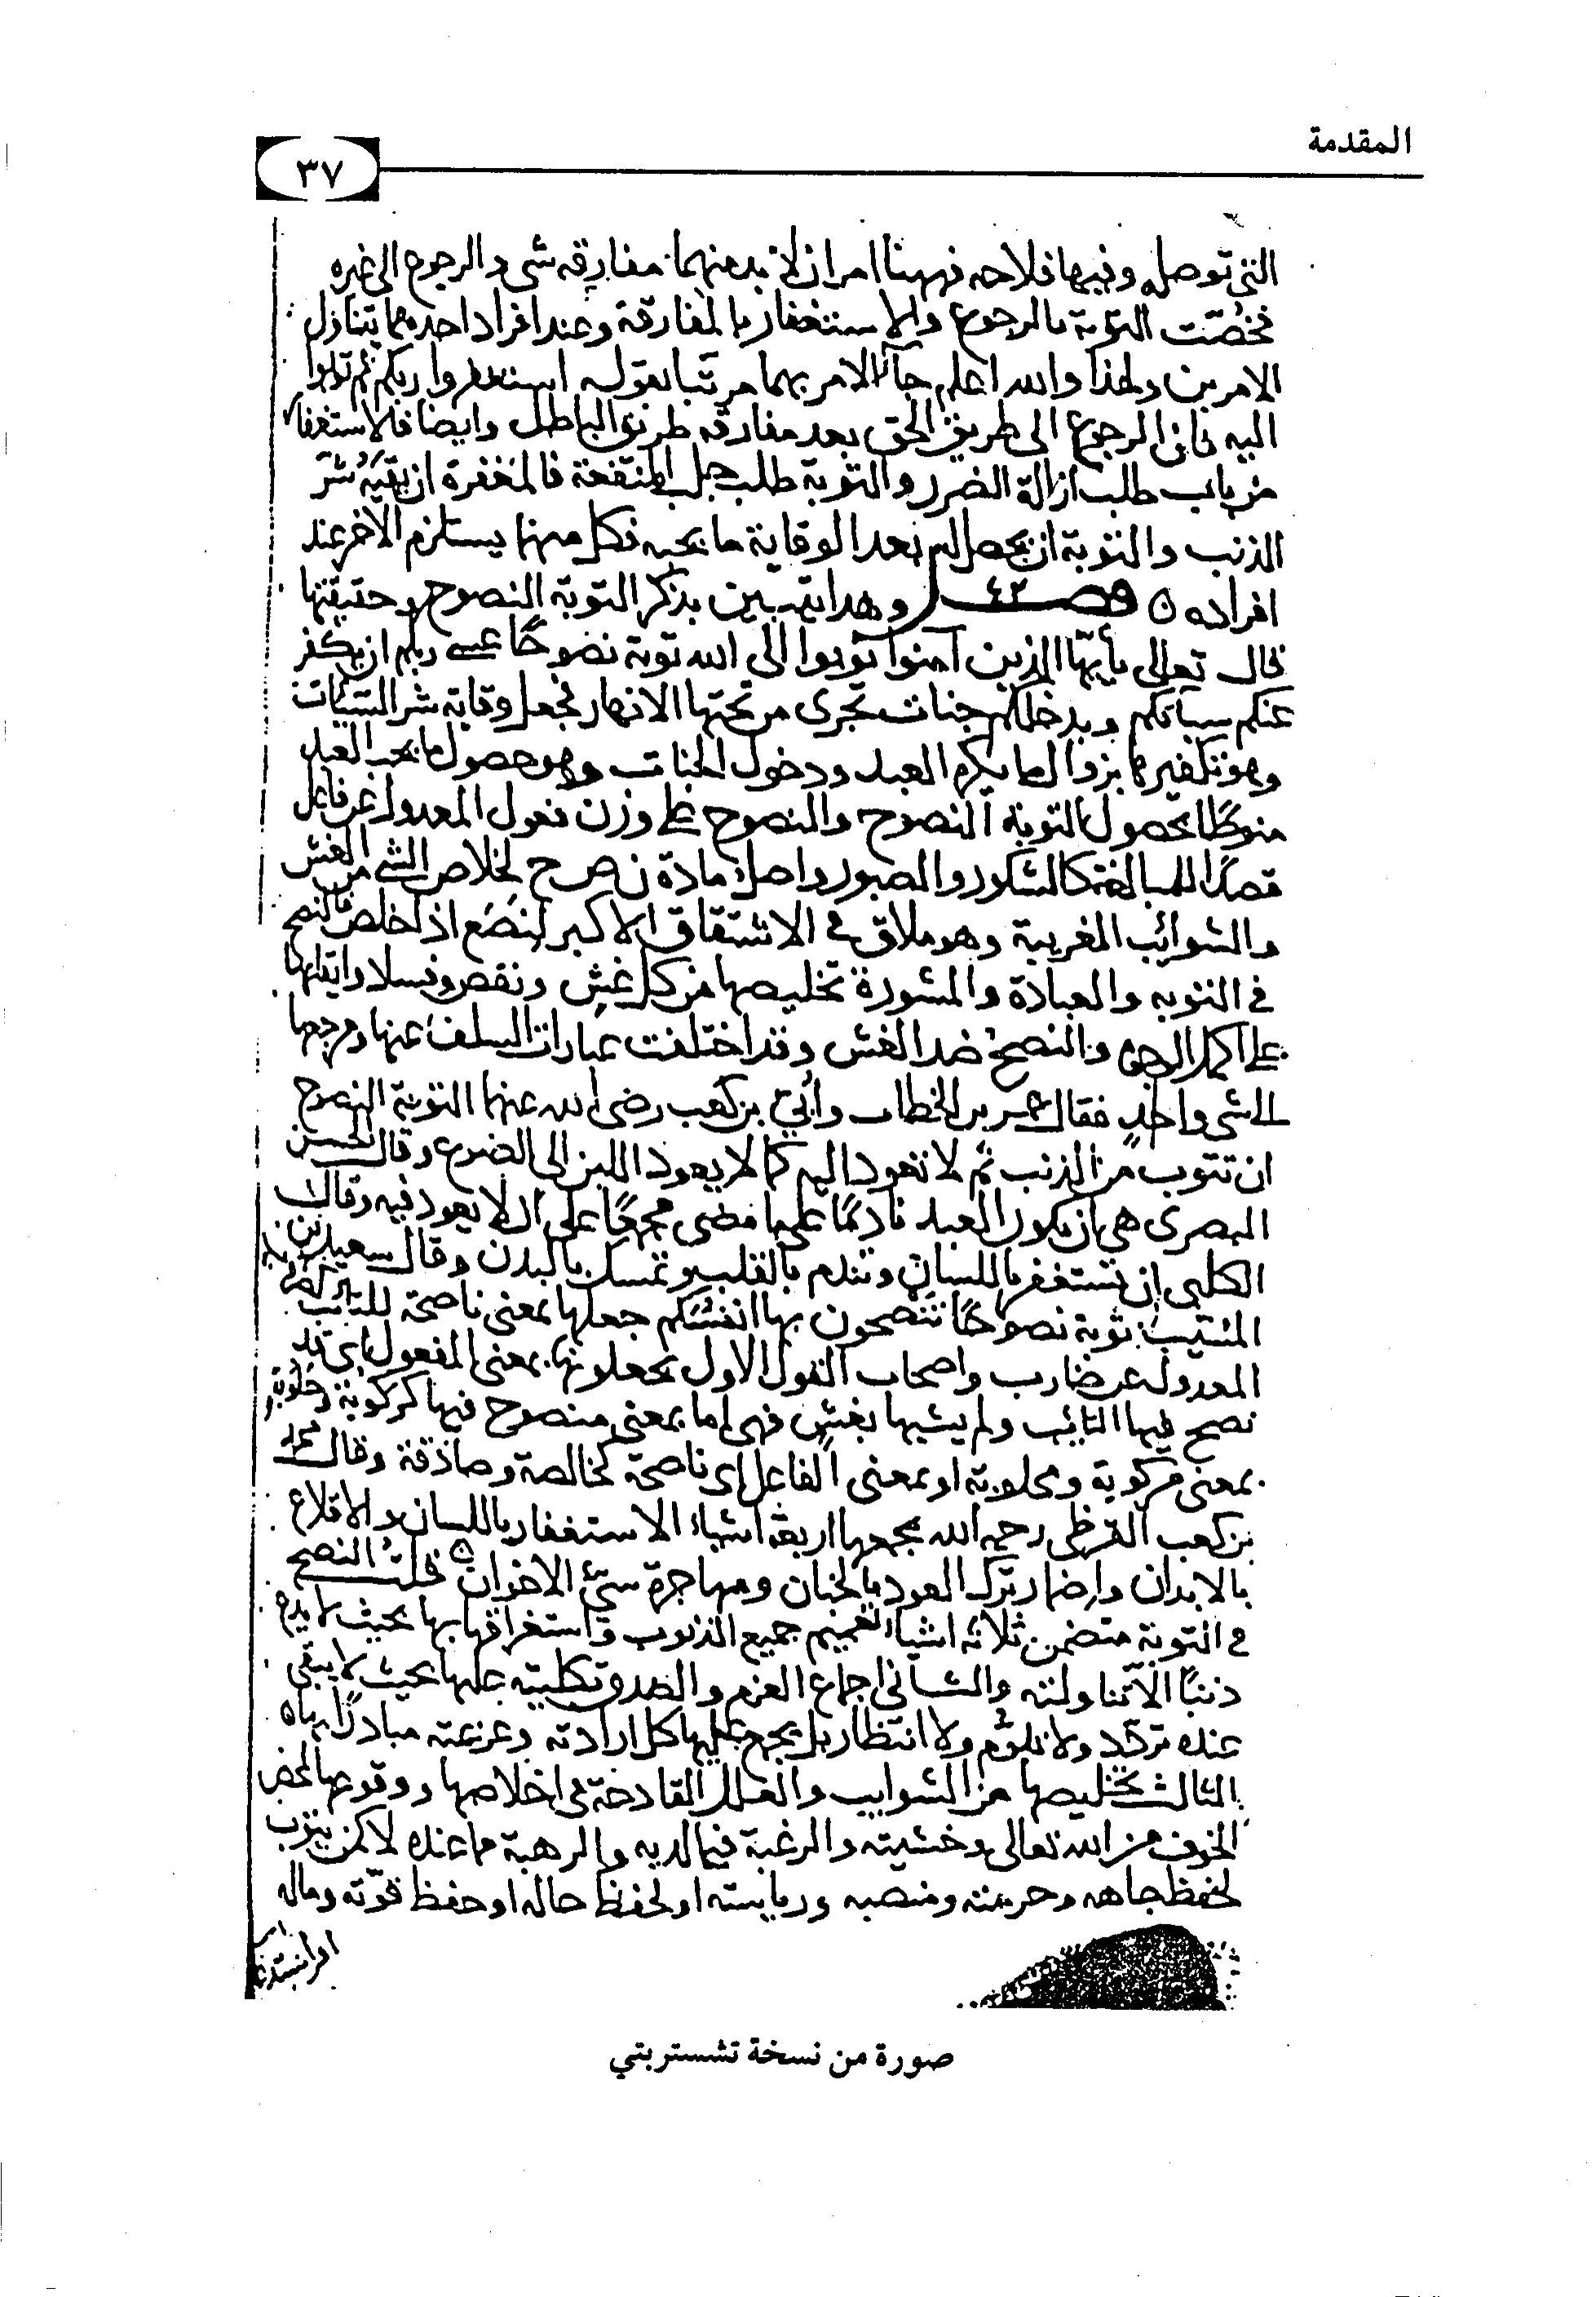 المقدمة
٣٧
التي توصله وفيها فلاحه فههنا امران لا بد منهما مفارقه شي والرجوع الى غيره
فخُصّت التوبة بالرجوع والاستغفار بالمفارقة وعند افراد احدهما يتناول
الامرين ولهذا والله اعلم جآء الامر بهما مرتبا بقوله استغفروا ربكم ثم توبوا
اليه فانه الرجوع الى طريق الحق بعد مفارقه طريق الباطل وايضا فالاستغفار
من باب طلب ازالة الضرر والتوبة طلب جلب المنفعة فالمغفرة ان يقيَه شرّ
الذنب والتوبة ان يحصل له بعد الوقاية ما يحبه فكل منهما يستلزم الاخر عند
افراده ٥ فصــــل وهذا يتبين بذكر التوبة النصوح وحقيقتها
قال تعالى يأيّها الذين آمنوا توبوا الى الله توبة نصوحًا عسى ربكم ان يكفر
عنكم سيئاتكم ويدخلكم جنات تجرى من تحتها الانهار فجعل وقاية شر السيئات
وهو تكفيرها بزوال ما يكره العبد ودخول الجنات وهو حصول ما يحب العبد
منوطًا بحصول التوبة النصوح والنصوح على وزن فعول المعدول عن فاعل
قصدًا للمبالغة كالشكور والصبور واصل مادة ن ص ح لخلاص الشي من الغش
والشوائب الغريبة وهو ملاق في الاشتقاق الاكبر لنصَع اذا خلص فالنصح
في التوبه والعبادة والمشورة تخليصها من كل غش ونقص وفساد وايقاعها
على اكمل الوجوه والنصحُ ضد الغش وقد اختلفت عبارات السلف عنها ومرجعها
الى شي واحدٍ فقال عمر بن الخطاب وأُبيّ بن كعب رضى الله عنهما التوبة النصوح
ان تتوب من الذنب ثم لا تعود اليه كما لا يعود اللبن الى الضرع وقال الحسن
البصرى هي ان يكون العبد نادمًا على ما مضى مجمعًا على ان لا يعود فيه وقال
الكلبى ان تستغفر باللسان وتندم بالقلب وتمسك بالبدن وقال سعيد بن
المسيب توبة نصوحًا تنصحون بها انفسكم جعلها بمعنى ناصحة للتائب كضارب
المعدول عن ضارب واصحاب القول الاول يجعلونها بمعنى المفعول اى قد
نصح فيها التائب ولم يشبها بغشٍ فهى اما بمعنى منصوح فيها كركوبة وحلوبة
بمعنى مركوبة ومحلوبة او بمعنى الفاعل اى ناصحة كخالصة وصادقة وقال محمد
بن كعب القرظى رحمه الله يجمعها اربعة اشياء الاستغفار باللسان والاقلاع
بالابدان وإضمار ترك العود بالجنان ومهاجرة سيّئ الاخوان ٥ قلتُ النصح
في التوبة متضمن ثلاثة اشياء تعميم جميع الذنوب واستغراقها بها بحيث لا يدع
ذنبًا الا تناولته والثـانى اجماع العزم والصدق بكليته عليها بحيث لا يبقى
عنده تردّد ولا تلوّم ولا انتظار بل يجمع عليها كل ارادته وعزيمته مبادرًا بها
الثالث تخليصها من الشوايب والعلل القادحة في اخلاصها ووقوعها لمحض
الخوف من الله تعالى وخشيته والرغبة فيما لديه والرهبة مما عنده لا كمن يتوب
لحفظ جاهه وحرمته ومنصبه ورياسته او لحفظ حاله او حفظ قوّته وماله
صورة من نسخة تشستربتي